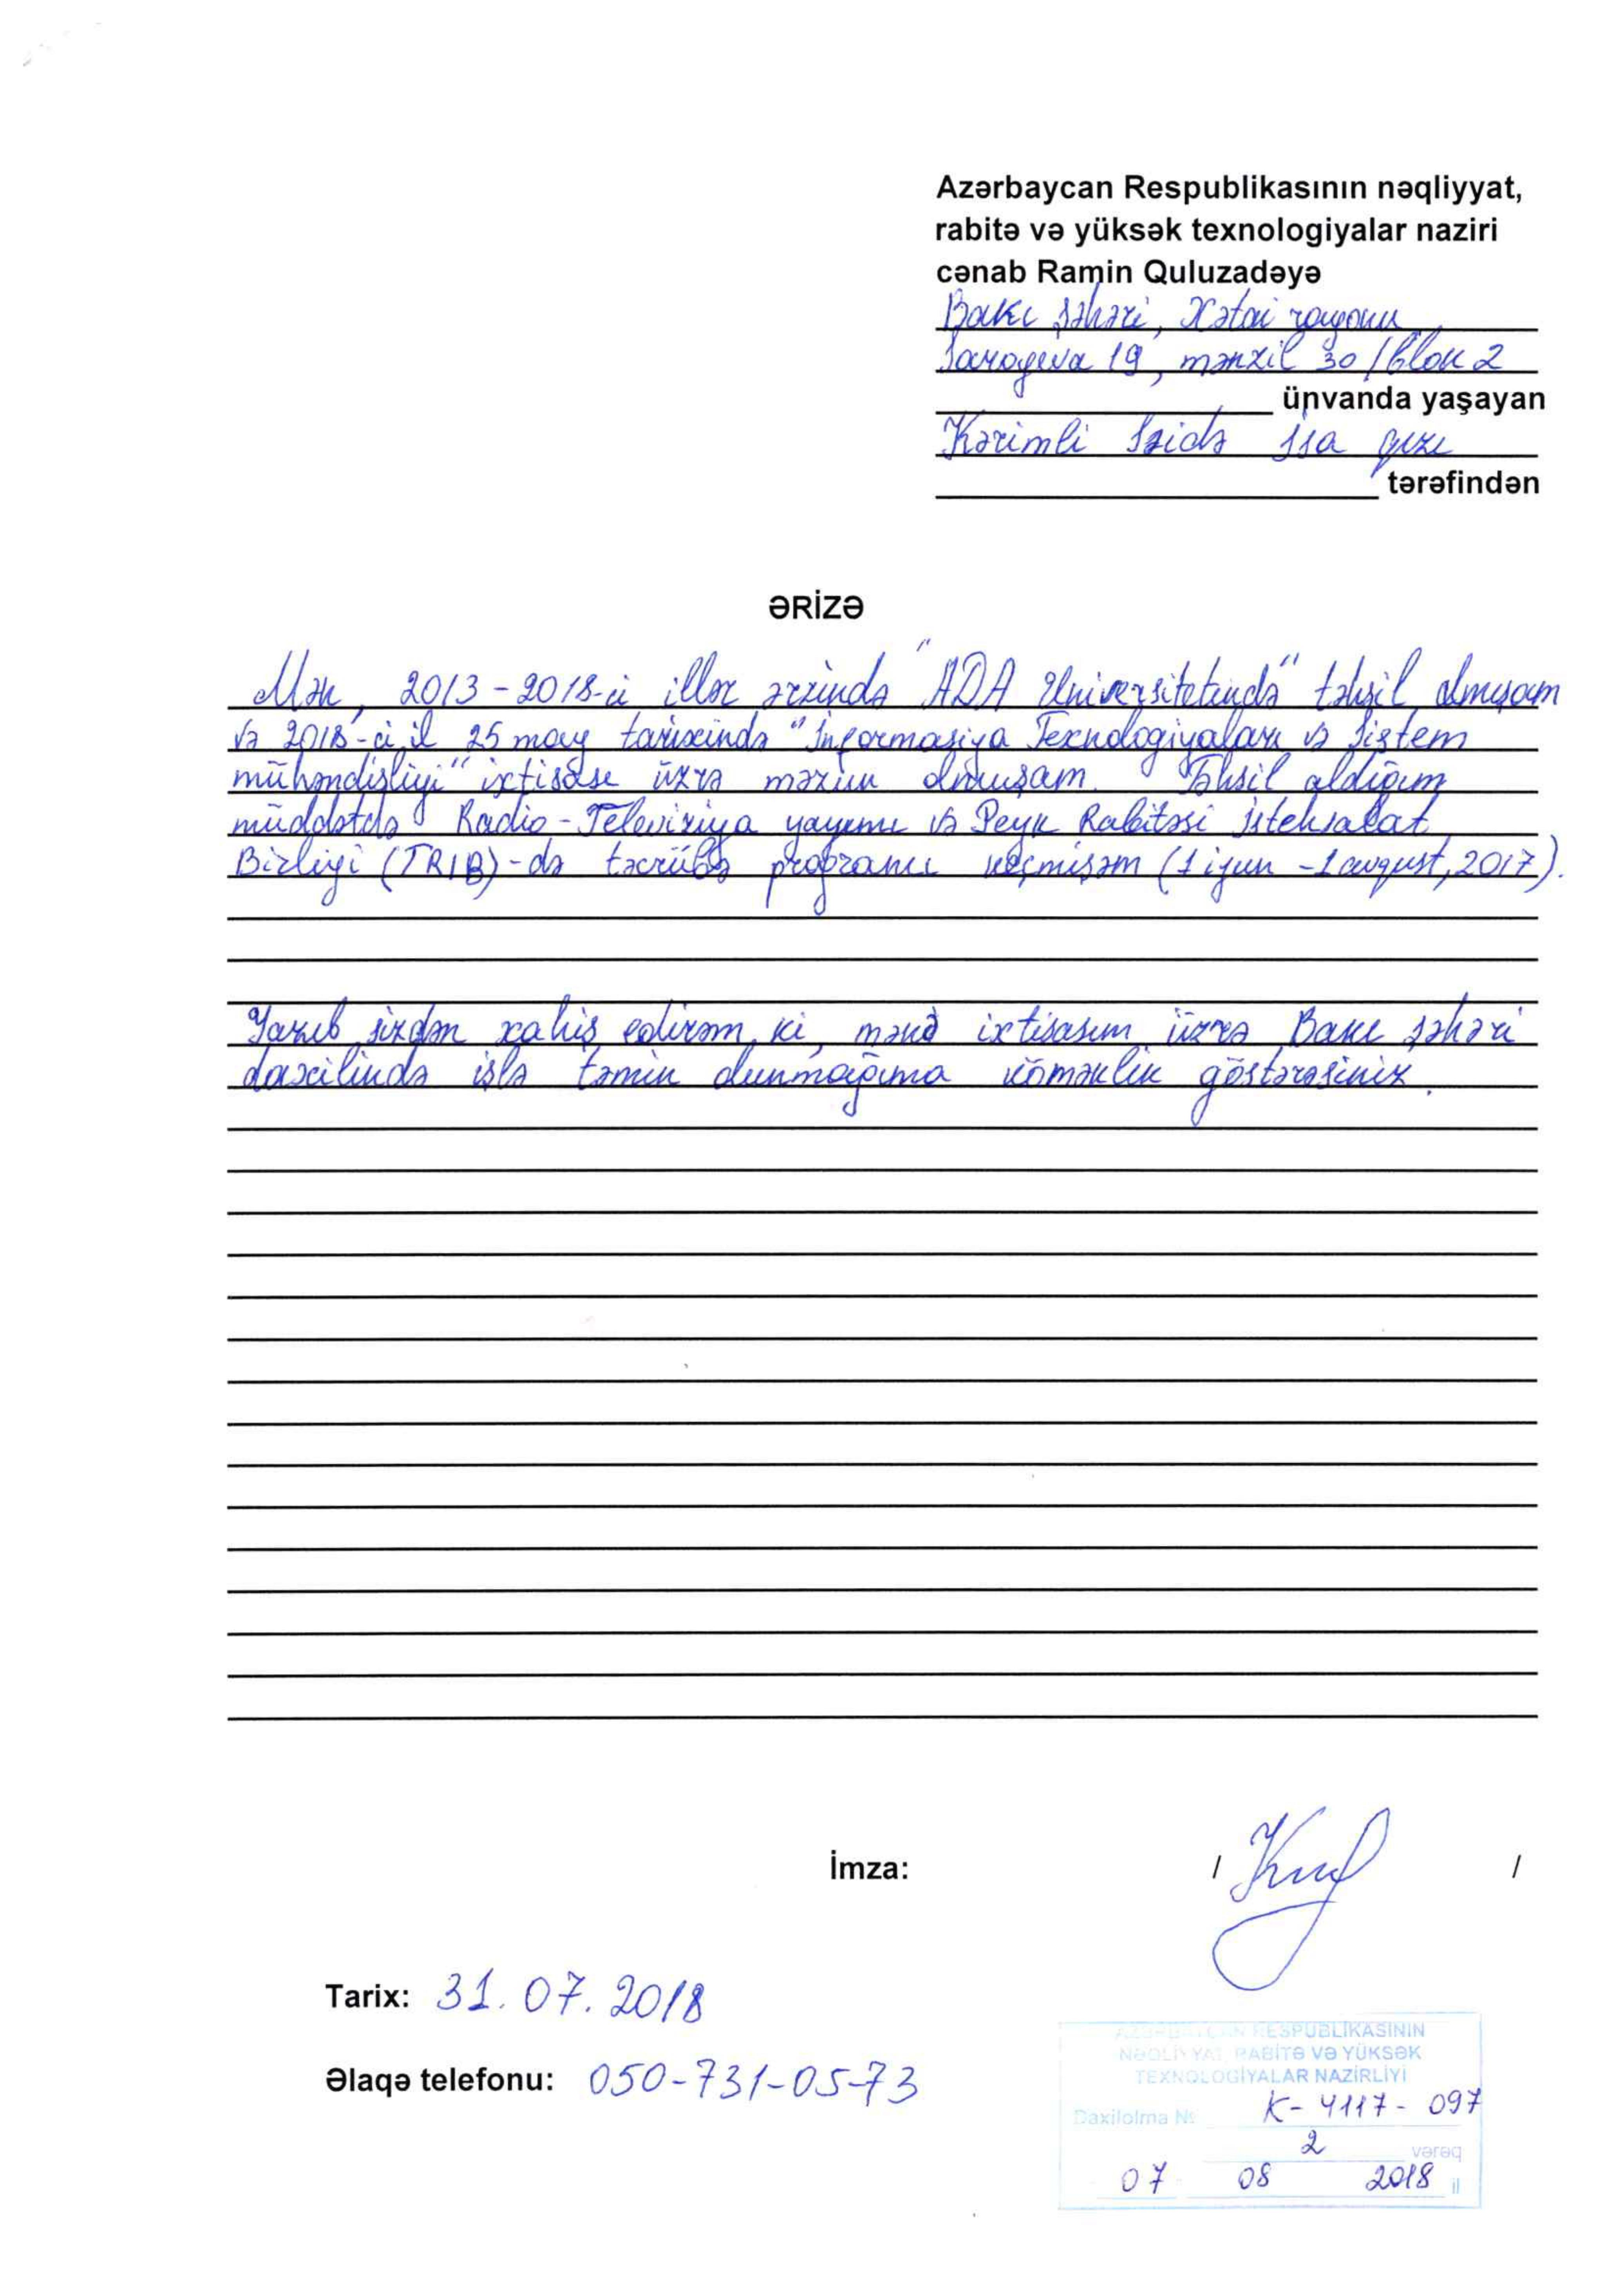 Azərbaycan Respublikasının nəqliyyat,
rabitə və yüksək texnologiyalar naziri
cənab Ramin Quluzadəyə
Bakı şəhəri, Xətai rayonu
Sarayeva 19, mənzil 30 / blok 2
ünvanda yaşayan
Kərimli Səidə İsa qızı
tərəfindən
ƏRİZƏ
Mən, 2013-2018-ci illər ərzində "ADA Universitetində" təhsil almışam
və 2018-ci il 25 may tarixində "İnformasiya Texnologiyaları və Sistem
mühəndisliyi" ixtisası üzrə məzun olmuşam. Təhsil aldığım
müddətdə Radio-Televiziya yayımı və Peyk Rabitəsi İstehsalat
Birliyi (TRIB)-də təcrübə proqramı keçmişəm (1 iyun - 1 avqust, 2017).
Yazıb sizdən xahiş edirəm ki, mənə ixtisasım üzrə Bakı şəhəri
daxilində işlə təmin olunmağıma köməklik göstərəsiniz.
İmza: / /
Tarix: 31.07.2018
Əlaqə telefonu: 050-731-05-73
AZƏRBAYCAN RESPUBLİKASININ
NƏQLİYYAT, RABİTƏ VƏ YÜKSƏK
TEXNOLOGİYALAR NAZİRLİYİ
Daxilolma № K-4117-097
2 vərəq
07 08 2018 il